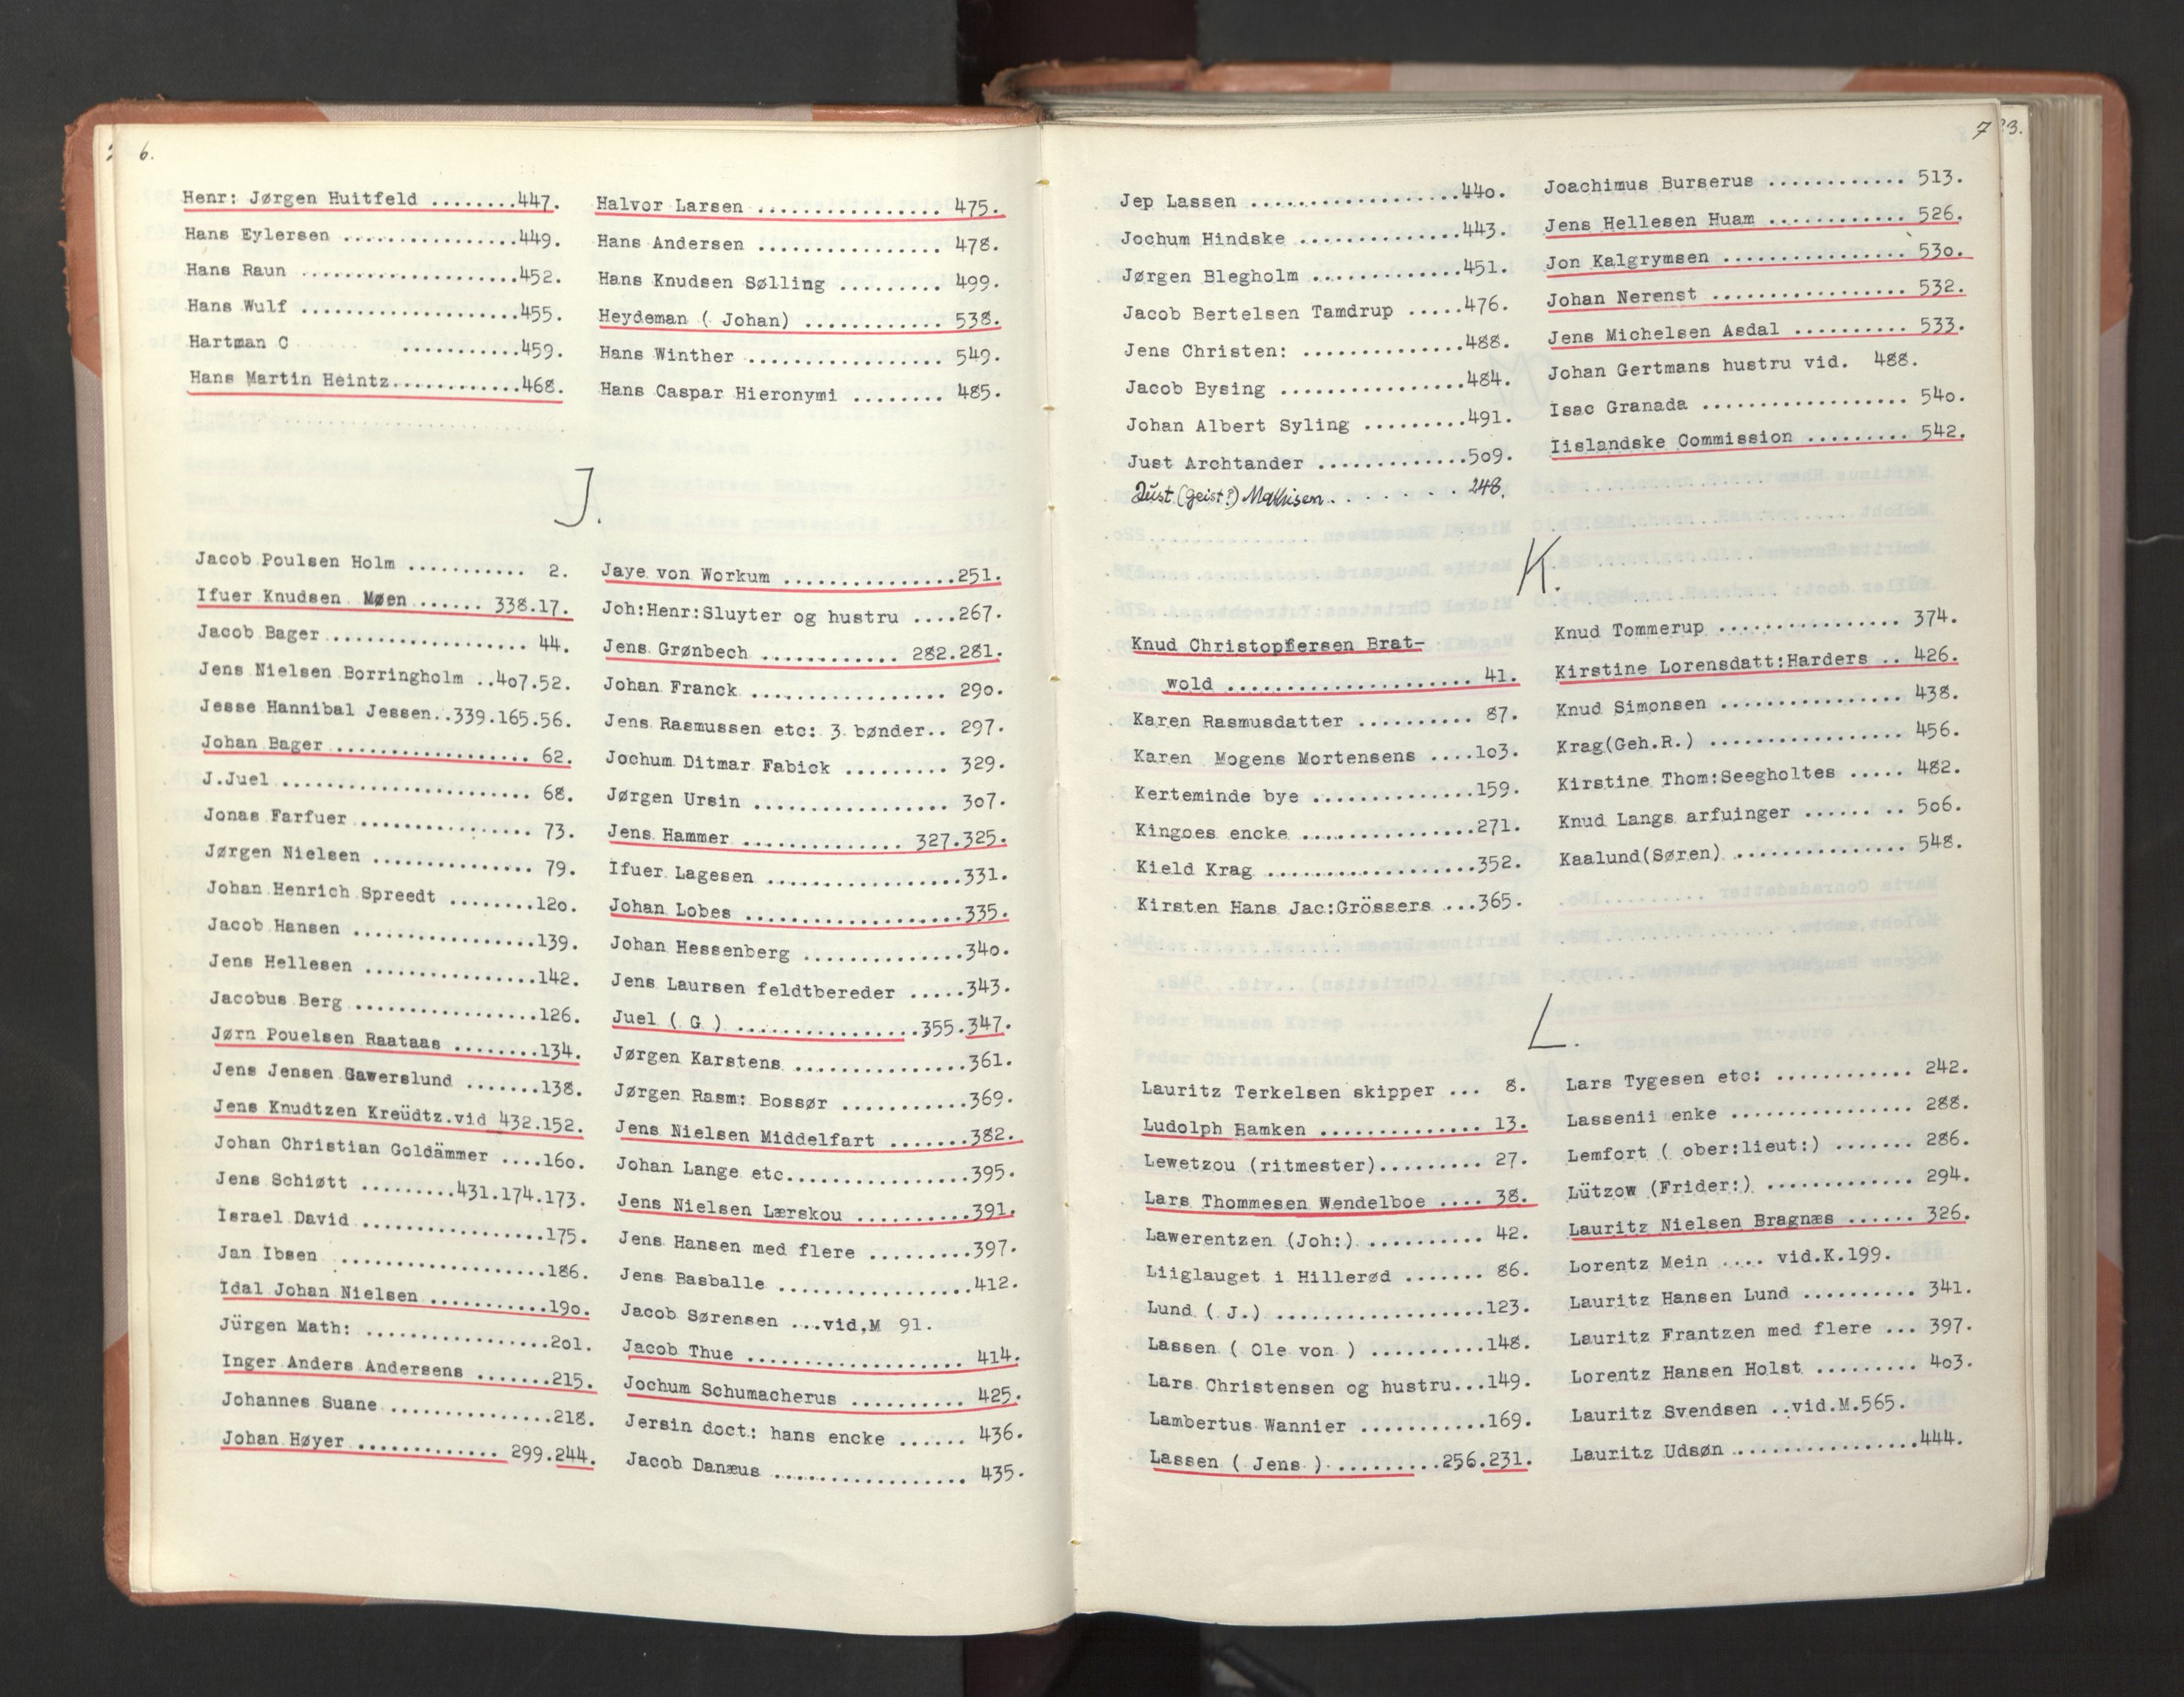 6.
Henr: Jørgen Huitfeld ........447.
Hans Eylersen .................449.
Hans Raun .....................452.
Hans Wulf .....................455.
Hartman C ...........459.
Hans Martin Heintz............468.
Halvor Larsen ................. 475.
Hans Andersen ................. 478.
Hans Knudsen Sølling ......... 499.
Heydeman ( Johan) ............ 538.
Hans Winther .................. 549.
Hans Caspar Hieronymi ........ 485.
J.
Jacob Poulsen Holm ........... 2.
Ifuer Knudsen Møen ...... 338.17.
Jacob Bager .................. 44.
Jens Nielsen Borringholm ..4o7.52.
Jesse Hannibal Jessen..339.165.56.
Johan Bager .................. 62.
J.Juel ....................... 68.
Jonas Farfuer ................ 73.
Jørgen Nielsen ............... 79.
Johan Henrich Spreedt ........12o.
Jacob Hansen .................139.
Jens Hellesen ................142.
Jacobus Berg .................126.
Jørn Pouelsen Raataas ........134.
Jens Jensen Gawerslund .......138.
Jens Knudtzen Kreüdtz.vid 432.152.
Johan Christian Goldämmer ....16o.
Jens Schiøtt .........431.174.173.
Israel David .................175.
Jan Ibsen ...................186.
Idal Johan Nielsen ...........19o.
Jürgen Math: .................2o1.
Inger Anders Andersens .......215.
Johannes Suane ...............218.
Johan Høyer ............. 299.244.
Jaye von Workum ...............251.
Joh:Henr:Sluyter og hustru ....267.
Jens Grønbech ............ 282.281.
Johan Franck .................. 29o.
Jens Rasmussen etc: 3 bønder.. 297.
Jochum Ditmar Fabick ......... 329.
Jørgen Ursin .................. 3o7.
Jens Hammer .............. 327.325.
Ifuer Lagesen ..................331.
Johan Lobes ....................335.
Johan Hessenberg ...............34o.
Jens Laursen feldtbereder .....343.
Juel ( G ) ................355.347.
Jørgen Karstens ...............361.
Jørgen Rasm: Bossør ...........369.
Jens Nielsen Middelfart .......382.
Johan Lange etc................395.
Jens Nielsen Lærskou ..........391.
Jens Hansen med flere .........397.
Jens Basballe ..................412.
Jacob Sørensen ...vid.M 91.
Jacob Thue .................... 414.
Jochum Schumacherus .......... 425.
Jersin doct: hans encke ...... 436.
Jacob Danæus .................. 435.
7
3.
Jep Lassen ...................44o.
Jochum Hindske ...............443.
Jørgen Blegholm ..............451.
Jacob Bertelsen Tamdrup .....476.
Jens Christen: ...............488.
Jacob Bysing .................484.
Johan Albert Syling .........491.
Just Archtander .............5o9.
Just (geist?) Mathisen . . . . . . . . 248.
Joachimus Burserus ............ 513.
Jens Hellesen Huam ............ 526.
Jon Kalgrymsen ................ 53o.
Johan Nerenst ................. 532.
Jens Michelsen Asdal .......... 533.
Johan Gertmans hustru vid. 488.
Isac Granada .................. 54o.
Iislandske Commission ......... 542.
K.
Knud Christophersen Brat-
wold ..................... 41.
Karen Rasmusdatter .......... 87.
Karen Mogens Mortensens ....1o3.
Kerteminde bye ..............159.
Kingoes encke ...............271.
Kield Krag ..................352.
Kirsten Hans Jac:Grössers ...365.
Knud Tommerup ................ 374.
Kirstine Lorensdatt:Harders .. 426.
Knud Simonsen ................ 438.
Krag(Geh.R.) ................. 456.
Kirstine Thom:Seegholtes ..... 482.
Knud Langs arfuinger ...... .. 5o6.
Kaalund(Søren) ............... 548.
L.
Lauritz Terkelsen skipper ... 8.
Ludolph Hamken .............. 13.
Lewetzou (ritmester)......... 27.
Lars Thommesen Wendelboe .... 38.
Lawerentzen (Joh:) .......... 42.
Liiglauget i Hillerød ....... 86.
Lund ( J.) ..................123.
Lassen ( Ole von ) ..........148.
Lars Christensen og hustru...149.
Lambertus Wannier ...........169.
Lassen ( Jens ) .........256.231.
Lars Tygesen etc: ............ 242.
Lassenii enke ................ 288.
Lemfort ( ober:lieut:) ....... 286.
Lützow (Frider:) ............. 294.
Lauritz Nielsen Bragnæs ...... 326.
Lorentz Mein .... vid.K.199.
Lauritz Hansen Lund .......... 341.
Lauritz Frantzen med flere ... 397.
Lorentz Hansen Holst ......... 4o3.
Lauritz Svendsen ..vid.M.565.
Lauritz Udsøn ................444.